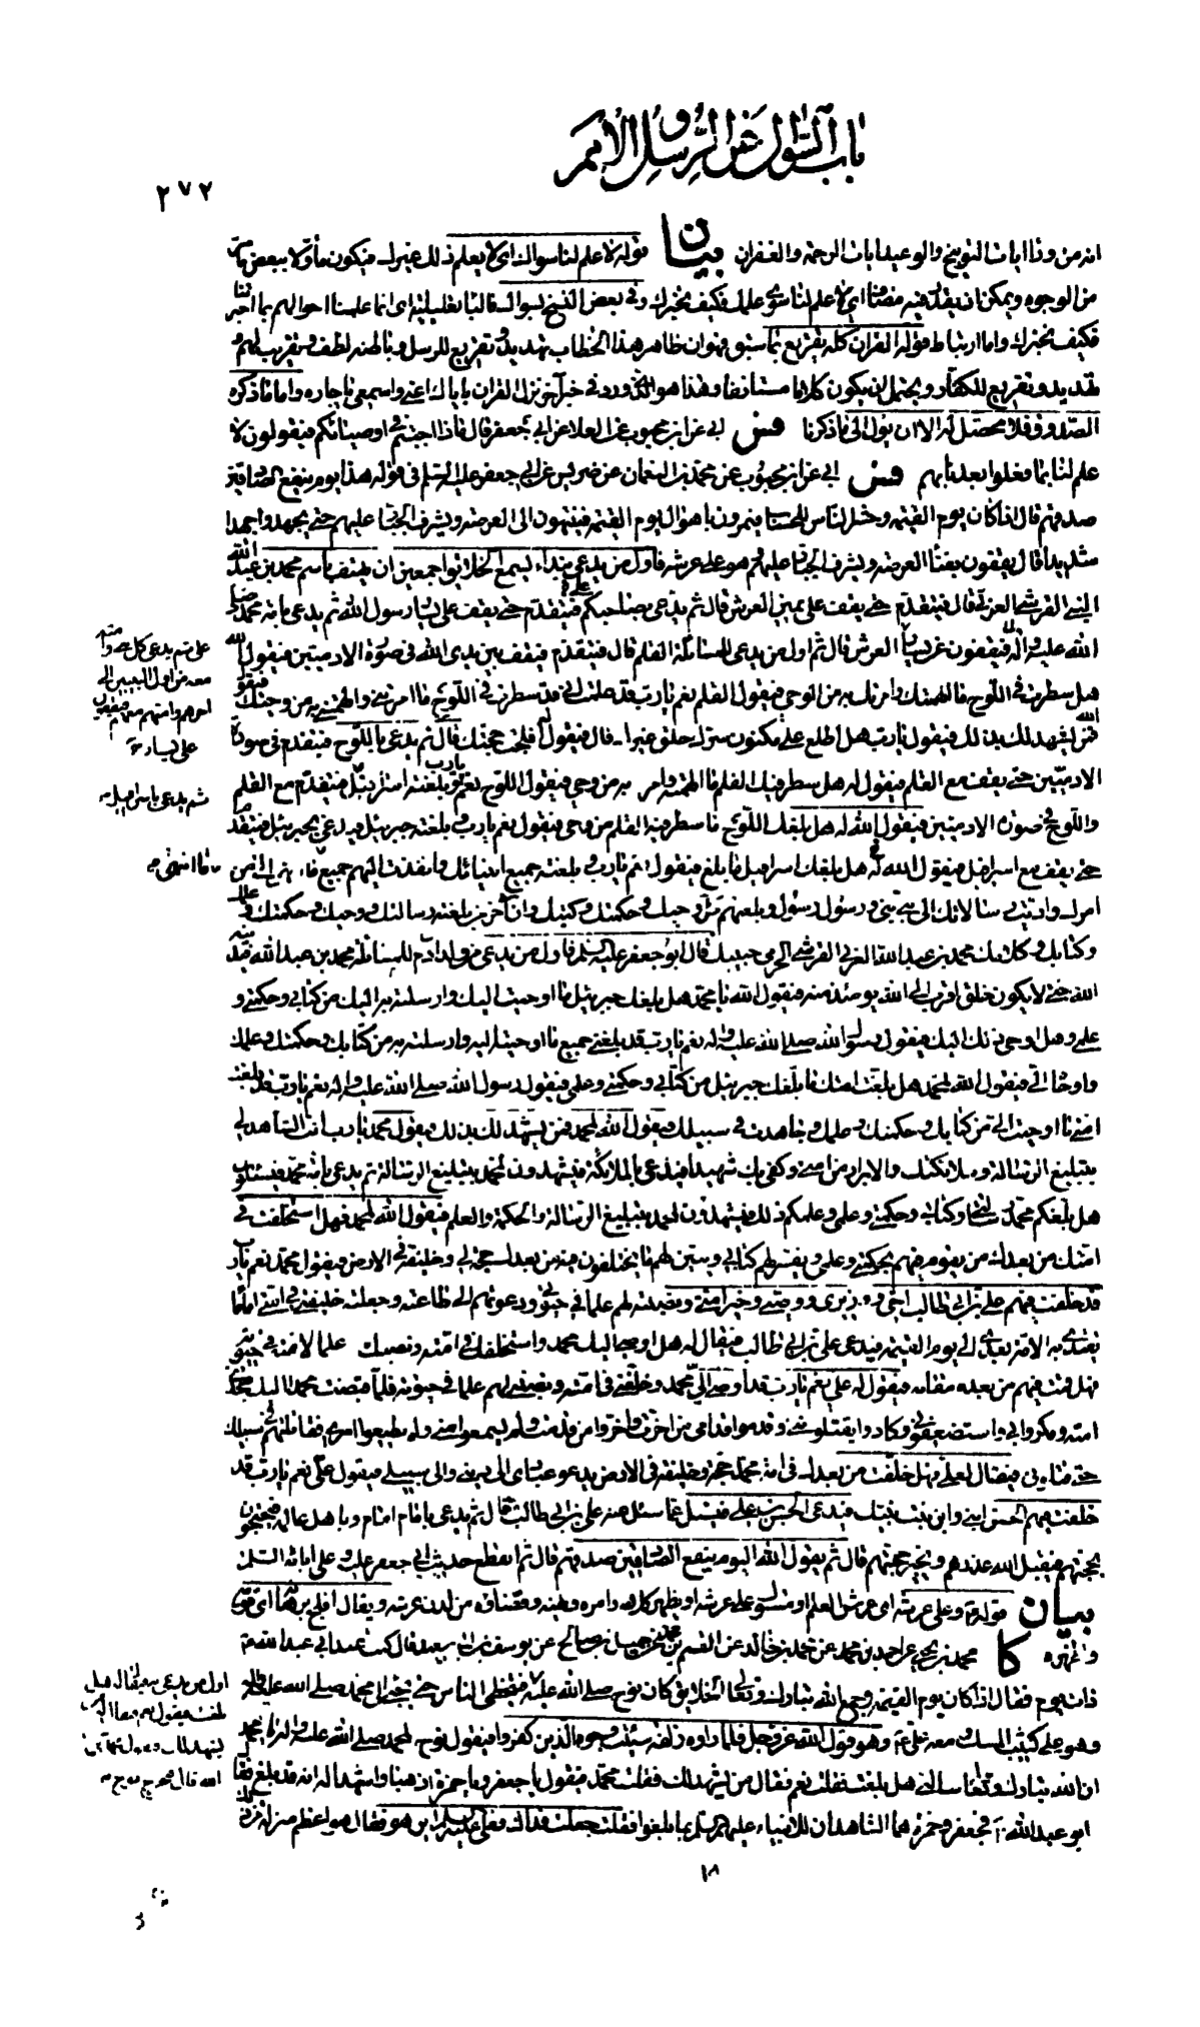 باب السؤال عن الرسل والامم
٢٧٢
انه من وذا ايات التوبيخ والوعيد ايات الرحمة والغفران بيان قوله لا علم لنا سواك اى لا يعلم ذلك غيرك فيكون مأولا ببعض
من الوجوه ويمكن ان يقدر فيه مضاف اى لا علم لنا سوى علمك فكيف نخبرك وفى بعض النسخ بسواك فالباء تعليلية اى انما علمنا احوالهم بما اخبرتنا
فكيف نخبرك واما ارتباط قوله القران كله تقريع بما سبق فهو ان ظاهر هذا الخطاب تهديد وتقريع للرسل وباطنه لطف وتقريب لهم و
تهديد وتقريع للكفار ويحتمل ان يكون كلاما مستانفا وهذا هو الذى ورد فى خبر آخر نزل القران باياك اعنى واسمعى يا جاره واما ما ذكره
الصدوق فلا محصل له الا ان يؤل الى ما ذكرنا فس ابى عن ابن محبوب عن العلا عن ابى جعفر قال ماذا اجبتم فى اوصيائكم فيقولون لا
علم لنا بما فعلوا بعدنا بهم فس ابى عن ابن محبوب عن محمد بن النعمان عن ضريس عن ابى جعفر عليه السلم فى قوله هذا يوم ينفع الصادقين
صدقهم قال اذا كان يوم القيمة وحشر الناس للحساب فيمرون باهوال يوم القيمة فينتهون الى العرصة ويشرف الجبار عليهم حتى يجهدوا جهدا
شديدا قال يقفون بفناء العرصة ويشرف الجبار عليهم وهو على عرشه فاول من يدعى بنداء يسمع الخلائق اجمعين ان يهتف باسم محمد بن عبد الله
النبى القرشى العربى قال فيتقدم حتى يقف على يمين العرش قال ثم يدعى بصاحبكم على فيتقدم حتى يقف على يسار رسول الله ثم يدعى بامة محمد صلى
الله عليه وآله فيقفون عن يسار العرش قال ثم اول من يدعى للمسائلة القلم قال فيتقدم فيقف بين يدى الله فى صورة الادميين فيقول الله
هل سطرت فى اللوح ما الهمتك وامرتك به من الوحى فيقول القلم نعم يا رب قد علمت انى قد سطرت فى اللوح ما امرتنى والهمتنى به من وحيك فيقول
الله فمن يشهد لك بذلك فيقول يا رب هل اطلع على مكنون سرك خلق غيرك قال فيقول له افلجت حجتك قال ثم يدعى باللوح فيتقدم فى صورة
الادميين حتى يقف مع القلم فيقول له هل سطر فيك القلم ما الهمته وامر به من وحيى فيقول اللوح نعم يا رب وبلغته اسرافيل فيتقدم مع القلم
واللوح فى صورة الادميين فيقول الله له هل بلغك اللوح ما سطر فيه القلم من وحيى فيقول نعم يا رب وبلغته جبرئيل فيدعى بجبرئيل فيتقدم
حتى يقف مع اسرافيل فيقول الله له هل بلغك اسرافيل ما بلغ فيقول نعم يا رب وبلغته جميع انبيائك وانفذت اليهم جميع ما انتهى الى من
امرك واديت رسالاتك الى نبى نبى ورسول رسول وبلغتهم كل وحيك وحكمتك وكتبك وان آخر من بلغته رسالتك ووحيك وحكمتك وعلمك
وكتابك وكلامك محمد بن عبد الله العربى القرشى الحرمى حبيبك قال ابو جعفر عليه السلم فاول من يدعى من ولد ادم للمسائلة محمد بن عبد الله فيدنيه
الله حتى لا يكون خلق اقرب الى الله يومئذ منه فيقول الله يا محمد هل بلغك جبرئيل ما اوحيت اليك وارسلته به اليك من كتابى وحكمتى و
علمى وهل اوحى ذلك اليك فيقول رسول الله صلى الله عليه وآله نعم يا رب قد بلغنى جبرئيل جميع ما اوحيته اليه وارسلته به من كتابك وحكمتك وعلمك
واوحاه الى فيقول الله لمحمد هل بلغت امتك ما بلغك جبرئيل من كتابى وحكمتى وعلمى فيقول رسول الله صلى الله عليه واله نعم يا رب قد بلغت
امتى ما اوحيت الى من كتابك وحكمتك وعلمك وجاهدت فى سبيلك فيقول الله لمحمد فمن يشهد لك بذلك فيقول محمد يا رب انت الشاهد لى
بتبليغ الرسالة وملائكتك والابرار من امتى وكفى بك شهيدا فيدعى بالملائكة فيشهدون لمحمد بتبليغ الرسالة ثم يدعى بامة محمد فيسئلون
هل بلغكم محمد رسالتى وكتابى وحكمتى وعلمى وعلمكم ذلك فيشهدون لمحمد بتبليغ الرسالة والحكمة والعلم فيقول الله لمحمد فهل استخلفت فى
امتك من بعدك من يقوم فيهم بحكمتى وعلمى ويفسر لهم كتابى ويبين لهم ما يختلفون فيه من بعدك حجة لى وخليفة فى الارض فيقول محمد نعم يا رب
قد خلفت فيهم على بن ابى طالب اخى ووزيرى ووصيى وخير امتى ونصبته لهم علما فى حيوتى ودعوتهم الى طاعته وجعلته خليفتى فى امتى اماما
يقتدى به الامة بعدى الى يوم القيمة فيدعى على بن ابى طالب فيقال له هل اوصى اليك محمد واستخلفك فى امته ونصبك علما لامته فى حيوته
فهل قمت فيهم من بعده مقامه فيقول له على نعم يا رب قد اوصى الى محمد وخلفنى فى امته ونصبنى لهم علما فى حيوته فلما قبضت محمدا اليك جحدتنى
امته ومكروا بى واستضعفونى وكادوا يقتلوننى وقدموا قدامى من اخرت واخروا من قدمت ولم يسمعوا منى ولم يطيعوا امرى فقاتلتهم فى سبيلك
حتى قتلونى فيقال لعلى فهل خلفت من بعدك فى امة محمد حجة وخليفة فى الارض يدعو عبادى الى دينى والى سبيلى فيقول على نعم يا رب قد
خلفت فيهم الحسن ابنى وابن بنت نبيك فيدعى الحسن بن على فيسئل عما سئل عنه على بن ابى طالب قال ثم يدعى بامام امام وباهل عالمه فيحتجون
بحجتهم فيقبل الله عذرهم ويجيز حجتهم قال ثم يقول الله اليوم ينفع الصادقين صدقهم قال ثم انقطع حديث ابى جعفر عليه وعلى ابائه السلم
بيان قوله وعلى عرشه اى عرش العلم او مستول على عرشه او يظهر كلامه وامره ونهيه وقضاؤه من لدن عرشه ويقال افلج برهانه اى قومه
واظهره كا محمد بن يحيى عن احمد بن محمد عن محمد بن خالد عن القسم بن محمد عن جميل بن صالح عن يوسف بن ابى سعيد قال كنت عند ابى عبد الله ع
ذات يوم فقال اذا كان يوم القيمة وجمع الله تبارك وتعالى الخلايق كان نوح صلى الله عليه فيتخطى الناس حتى يجئ الى محمد صلى الله عليه واله
وهو على كثيب المسك ومعه على ع وهو قول الله عز وجل فلما راوه زلفة سيئت وجوه الذين كفروا فيقول نوح لمحمد صلى الله عليه واله يا محمد
ان الله تبارك وتعالى سالنى هل بلغت فقلت نعم فقال من يشهد لك فقلت محمد فيقول يا جعفر ويا حمزة اذهبا واشهدا له انه قد بلغ فقال
ابو عبد الله ع فجعفر وحمزة هما الشاهدان للانبياء عليهم السلم بما بلغوا فقلت جعلت فداك فعلى عليه السلم اين هو فقال هو اعظم منزلة من ذلك
ثم يدعى باسرافيل
ما انتهى
على يساره
١٨